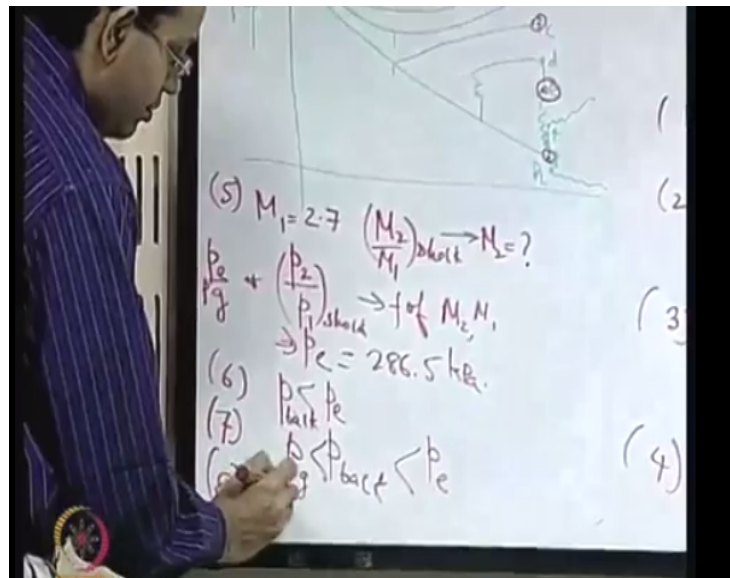 c
d
h
(5) M₁ = 2.7 (M₂/M₁)shock → M₂ = ?
pₑ/p_g * (p₂/p₁)shock → f of M₂, M₁
→ pₑ = 286.5 kPa.
(6) p_back < pₑ
(7) p_g < p_back < pₑ
(
(2
(3)
(4)